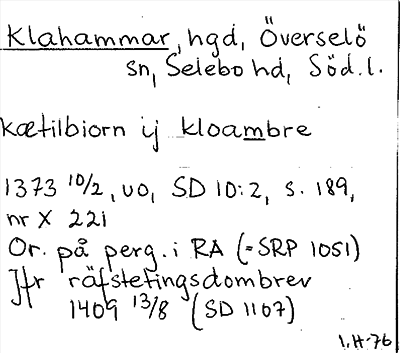 Klahammar, hgd, Överselö
sn, Selebo hd, Söd.l.
kætilbiorn ij kloambre
1373 10/2, uo, SD 10:2, s. 189,
nr X 221
Or. på perg. i RA (=SRP 1051)
Jfr räfstetingsdombrev
1409 13/8 (SD 1107)
I.H-76